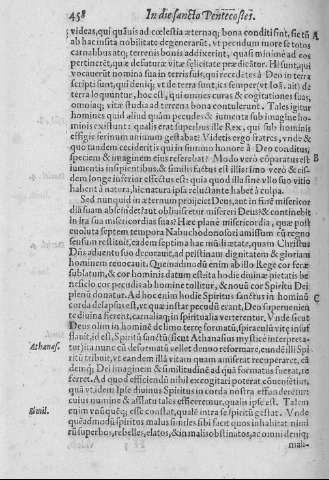 458 In die sancto Pentecostes.
videas, qui quāuis ad cœlestia æternaq; bona conditi sint, sic tñ A
ab hac insita nobilitate degenerārūt, vt pecudum more se totos
carnalibus atq; terrenis bonis addixerint, quasi minimè ad eos
pertineret, quæ de futuræ vitæ felicitate prædicātur. Hi sunt, qui
vocauerūt nomina sua in terris suis, qui recedētes à Deo in terra
scripti sunt, qui deniq; vt de terra sunt, ita semper (vt Ioā. ait) de
terra loquuntur, hoc est, qui omnes curas & cogitationes suas,
omniaq; vitæ studia ad terrena bona contulerunt. Tales igitur
homines quid aliud quàm pecudes & iumenta sub imagine ho-
minis existunt: qualis erat superbus ille Rex, qui sub hominis
effigie ferinum animum gestabat? Videtis ergo fratres, vnde &
quo tandem cecideritis qui in summo honore à Deo conditus,
speciem & imaginem eius referebat? Modò verò cōparatus est B
iumentis insipientibus, & similis factus est illis: imò verò & eis-
dem longè inferior effectus est: quia quod illa sine vllo suo vitio
habent à natura, hic natura ipsa reluctante habet à culpa.
Sed nunquid in æternum proijciet Deus, aut in finē misericor
diā suam abscindet: aut obliuiscetur misereri Deus: & continebit
in ira sua misericordias suas? Hæc planè misericordia, quæ post
euoluta septem tempora Nabuchodonosori amissum cū regno
sensum restituit, eadem septima hac mūdi ætate, quam Christus
Dñs aduentu suo decorauit, ad pristinam dignitatem & gloriam
hominem reuocauit. Quemadmodū enim ab illo Rege cor feræ
sublatum, & cor hominis datum est: ita hodie diuinæ pietatis be
neficio cor pecudis ab homine tollitur, & nouū cor Spiritu Dei
plenū donatur. Ad hoc enim hodie Spiritus sanctus in hominū C
corda delapsus est, vt quæ instar pecudū erant, Deo superuenien
te diuina fierent, carnaliaq; in spiritualia verterentur. Vnde sicut
Deus olim in homine de limo terræ formatū, spiraculū vitæ insuf
flauit, id est, Spiritū sanctū; sicut Athanasius mysticè interpreta-
Athanas.
tur: ita nunc cū deformatū vellet denuo reformare, eundē illi Spi-
ritū tribuit, vt eandem illā vitam quam amiserat recuperaret, eā
demq; Dei imaginem & similitudinē ad quā formatus fuerat, re
ferret. Ad quod efficiendū nihil excogitari poterat cōuenientius,
quā vt adem Ipse diuinus Spiritus in corda nostra effunderetur:
cuius numine & afflatu tales efficeremur, qualis ipse est. Talem
Simil.
enim vnūquēq; esse constat, qualē intra se spiritū gestat. Vnde
quēadmodū spiritus malus similes sibi facit quos inhabitat: nimi
rū superbos, rebelles, elatos, & in malis obstinatos, ac omni deniq;
mali-